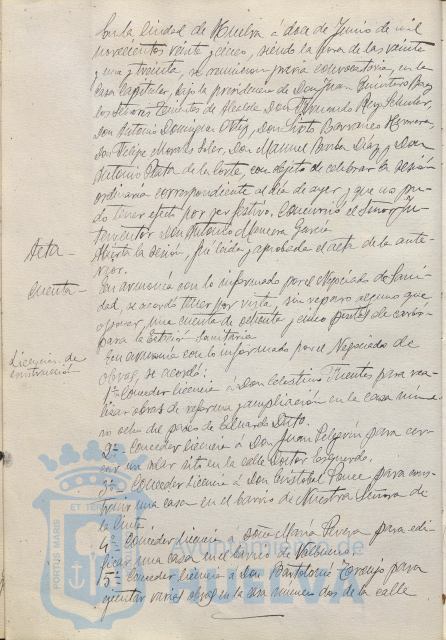 En la Ciudad de Huelva á doce de Junio de mil
novecientos veinte y cinco, siendo la hora de las veinte
y una y treinta, se reunieron previa convocatoria, en la
Casa Capitular, bajo la presidencia de Don Juan Quintero Baez
los Señores Tenientes de Alcalde Don Fernando Rey
Don Antonio Domínguez Ortiz, Don Sixto Barranco Herrera,
Don Felipe Morales Soler, Don Manuel Barba Díaz y Don
Antonio Plata de la Corte, con objeto de celebrar la sesión
ordinaria correspondiente al día de ayer y que no pu-
do tener efecto por ser festivo. Concurrió el Señor In-
terventor Don Antonio Manzera García
Acta - Abierta la sesión, fué leída y aprobada el acta de la ante-
rior.
Cuenta - En armonía con lo informado por el Negociado de Sani-
dad, se acordó tener por vista, sin reparo alguno que
oponer, una cuenta de ochenta y cinco pesetas de carbón
para la Estación Sanitaria
Licencias de construcción
En armonía con lo informado por el Negociado de
Obras, se acordó:
1º- Conceder licencia á Don Celestino Fuentes para rea-
lizar obras de reforma y ampliación en la casa núme-
ro ocho del paseo de Eduardo Dato.
2º- Conceder licencia á Don Juan para cer-
car un solar sito en la calle Doctor Esquerdo.
3º- Conceder licencia á Don Cristobal Ponce para cons-
truir una casa en el barrio de Nuestra Señora de
la Cinta.
4º- Conceder licencia á doña María Perera para edi-
ficar una casa en el barrio de Valbueno.
5º- Conceder licencia á Don Bartolomé Toranjo para
ejecutar varias obras en la casa número dos de la calle
PORTUS MARIS ET TERRAE
Ayuntamiento de
HUELVA